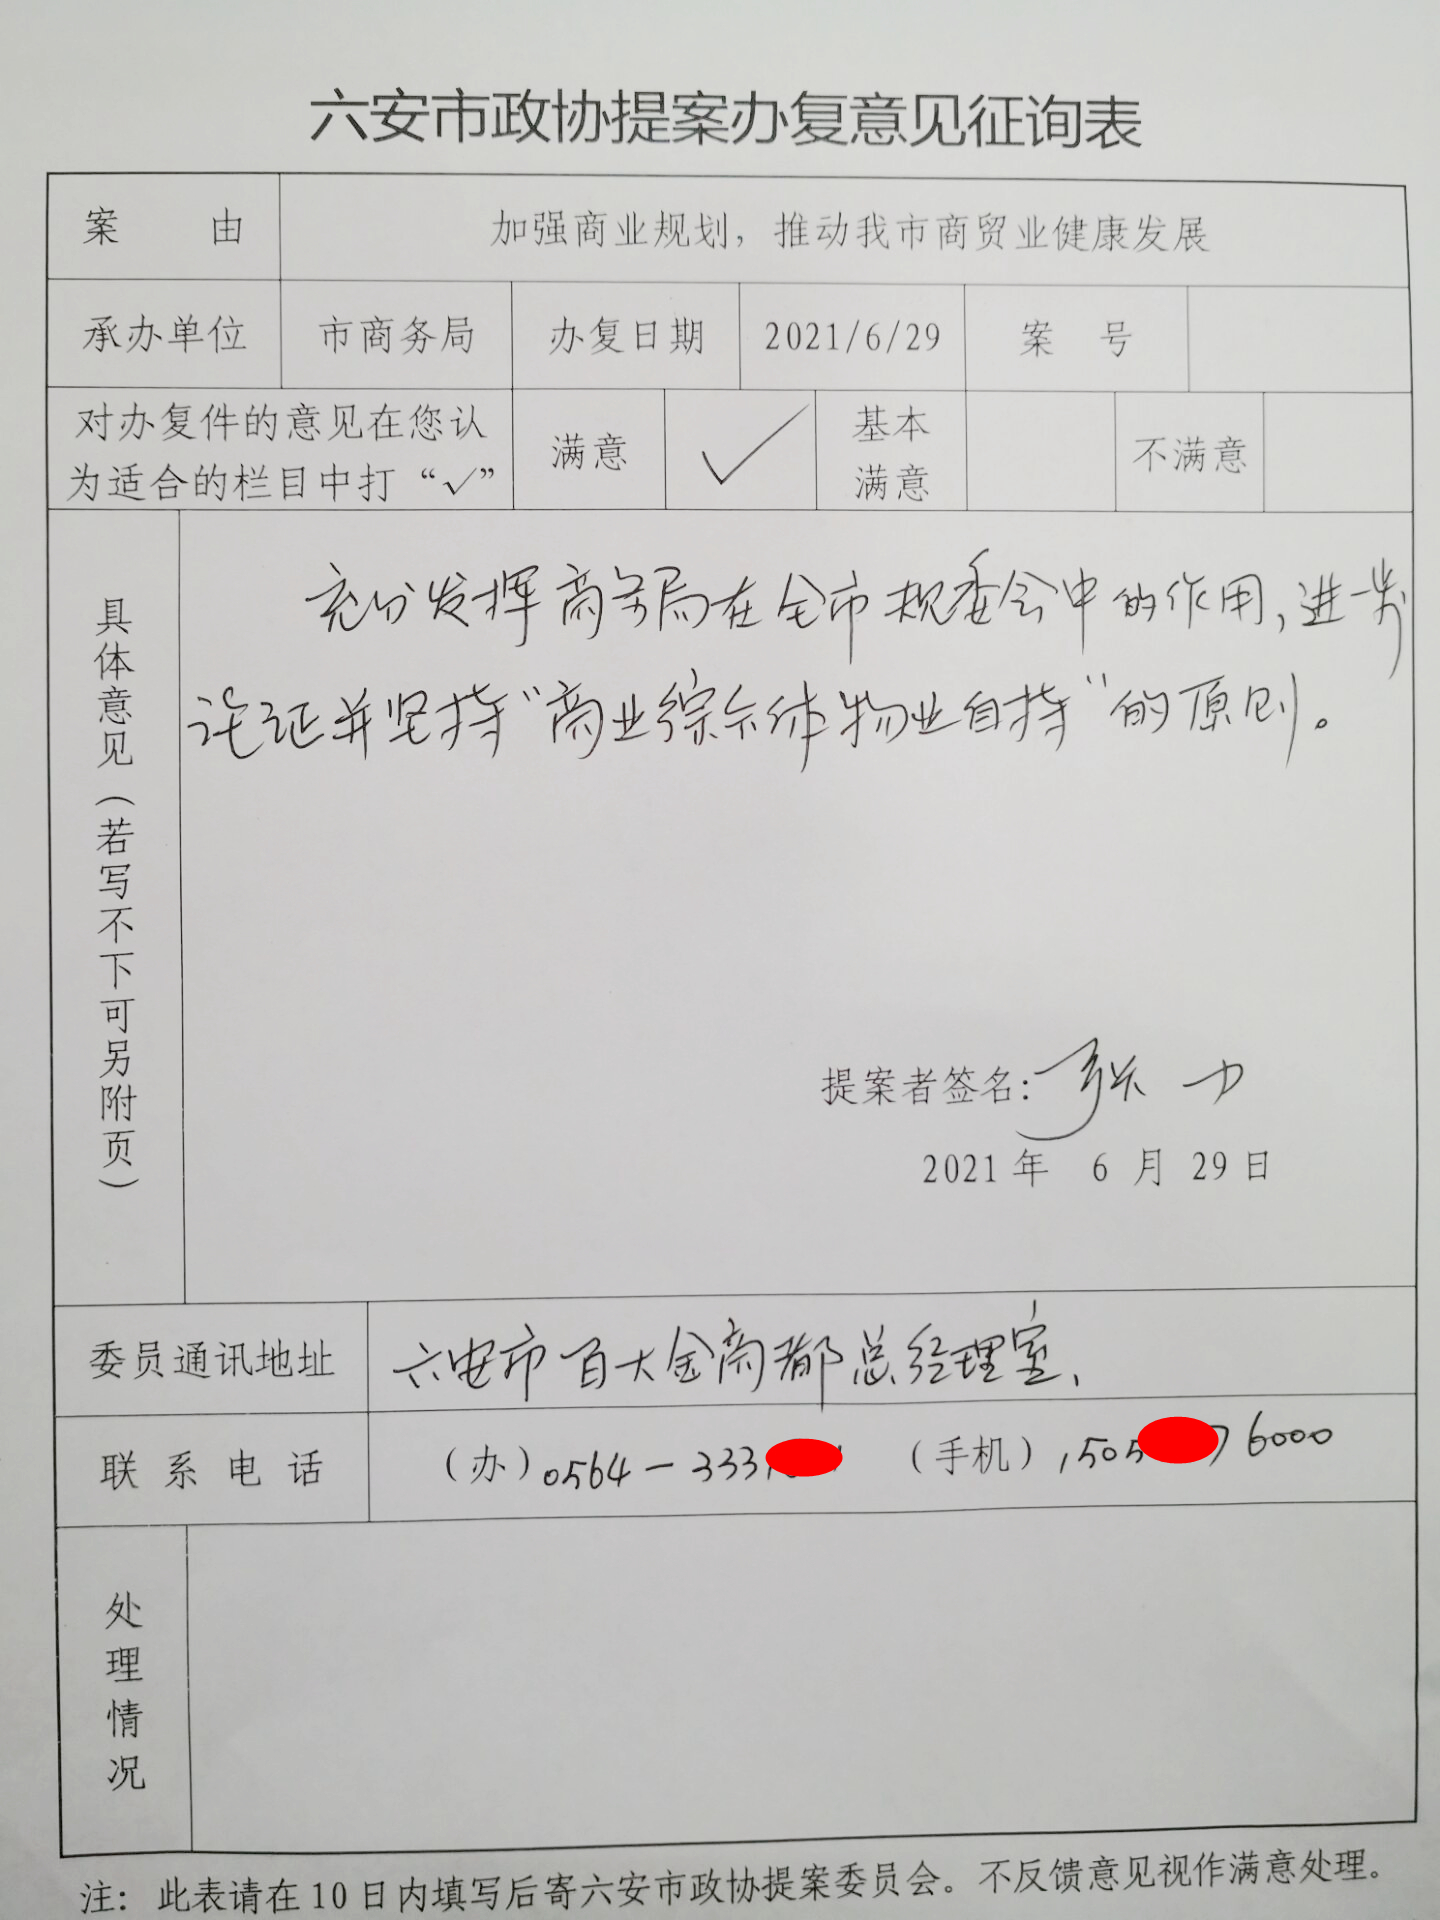 六安市政协提案办复意见征询表
案 由
加强商业规划，推动我市商贸业健康发展
承办单位 市商务局 办复日期 2021/6/29 案 号
对办复件的意见在您认
为适合的栏目中打“√”
满意 √
基本
满意
不满意
具体意见（若写不下可另附页）
充分发挥商务局在全市规委会中的作用，进一步
论证并坚持“商业综合体物业自持”的原则。
提案者签名：张力
2021年 6月 29日
委员通讯地址 六安市百大金商都总经理室、
联系电话 （办）0564-333 （手机）1505 6000
处理情况
注：此表请在10日内填写后寄六安市政协提案委员会。不反馈意见视作满意处理。